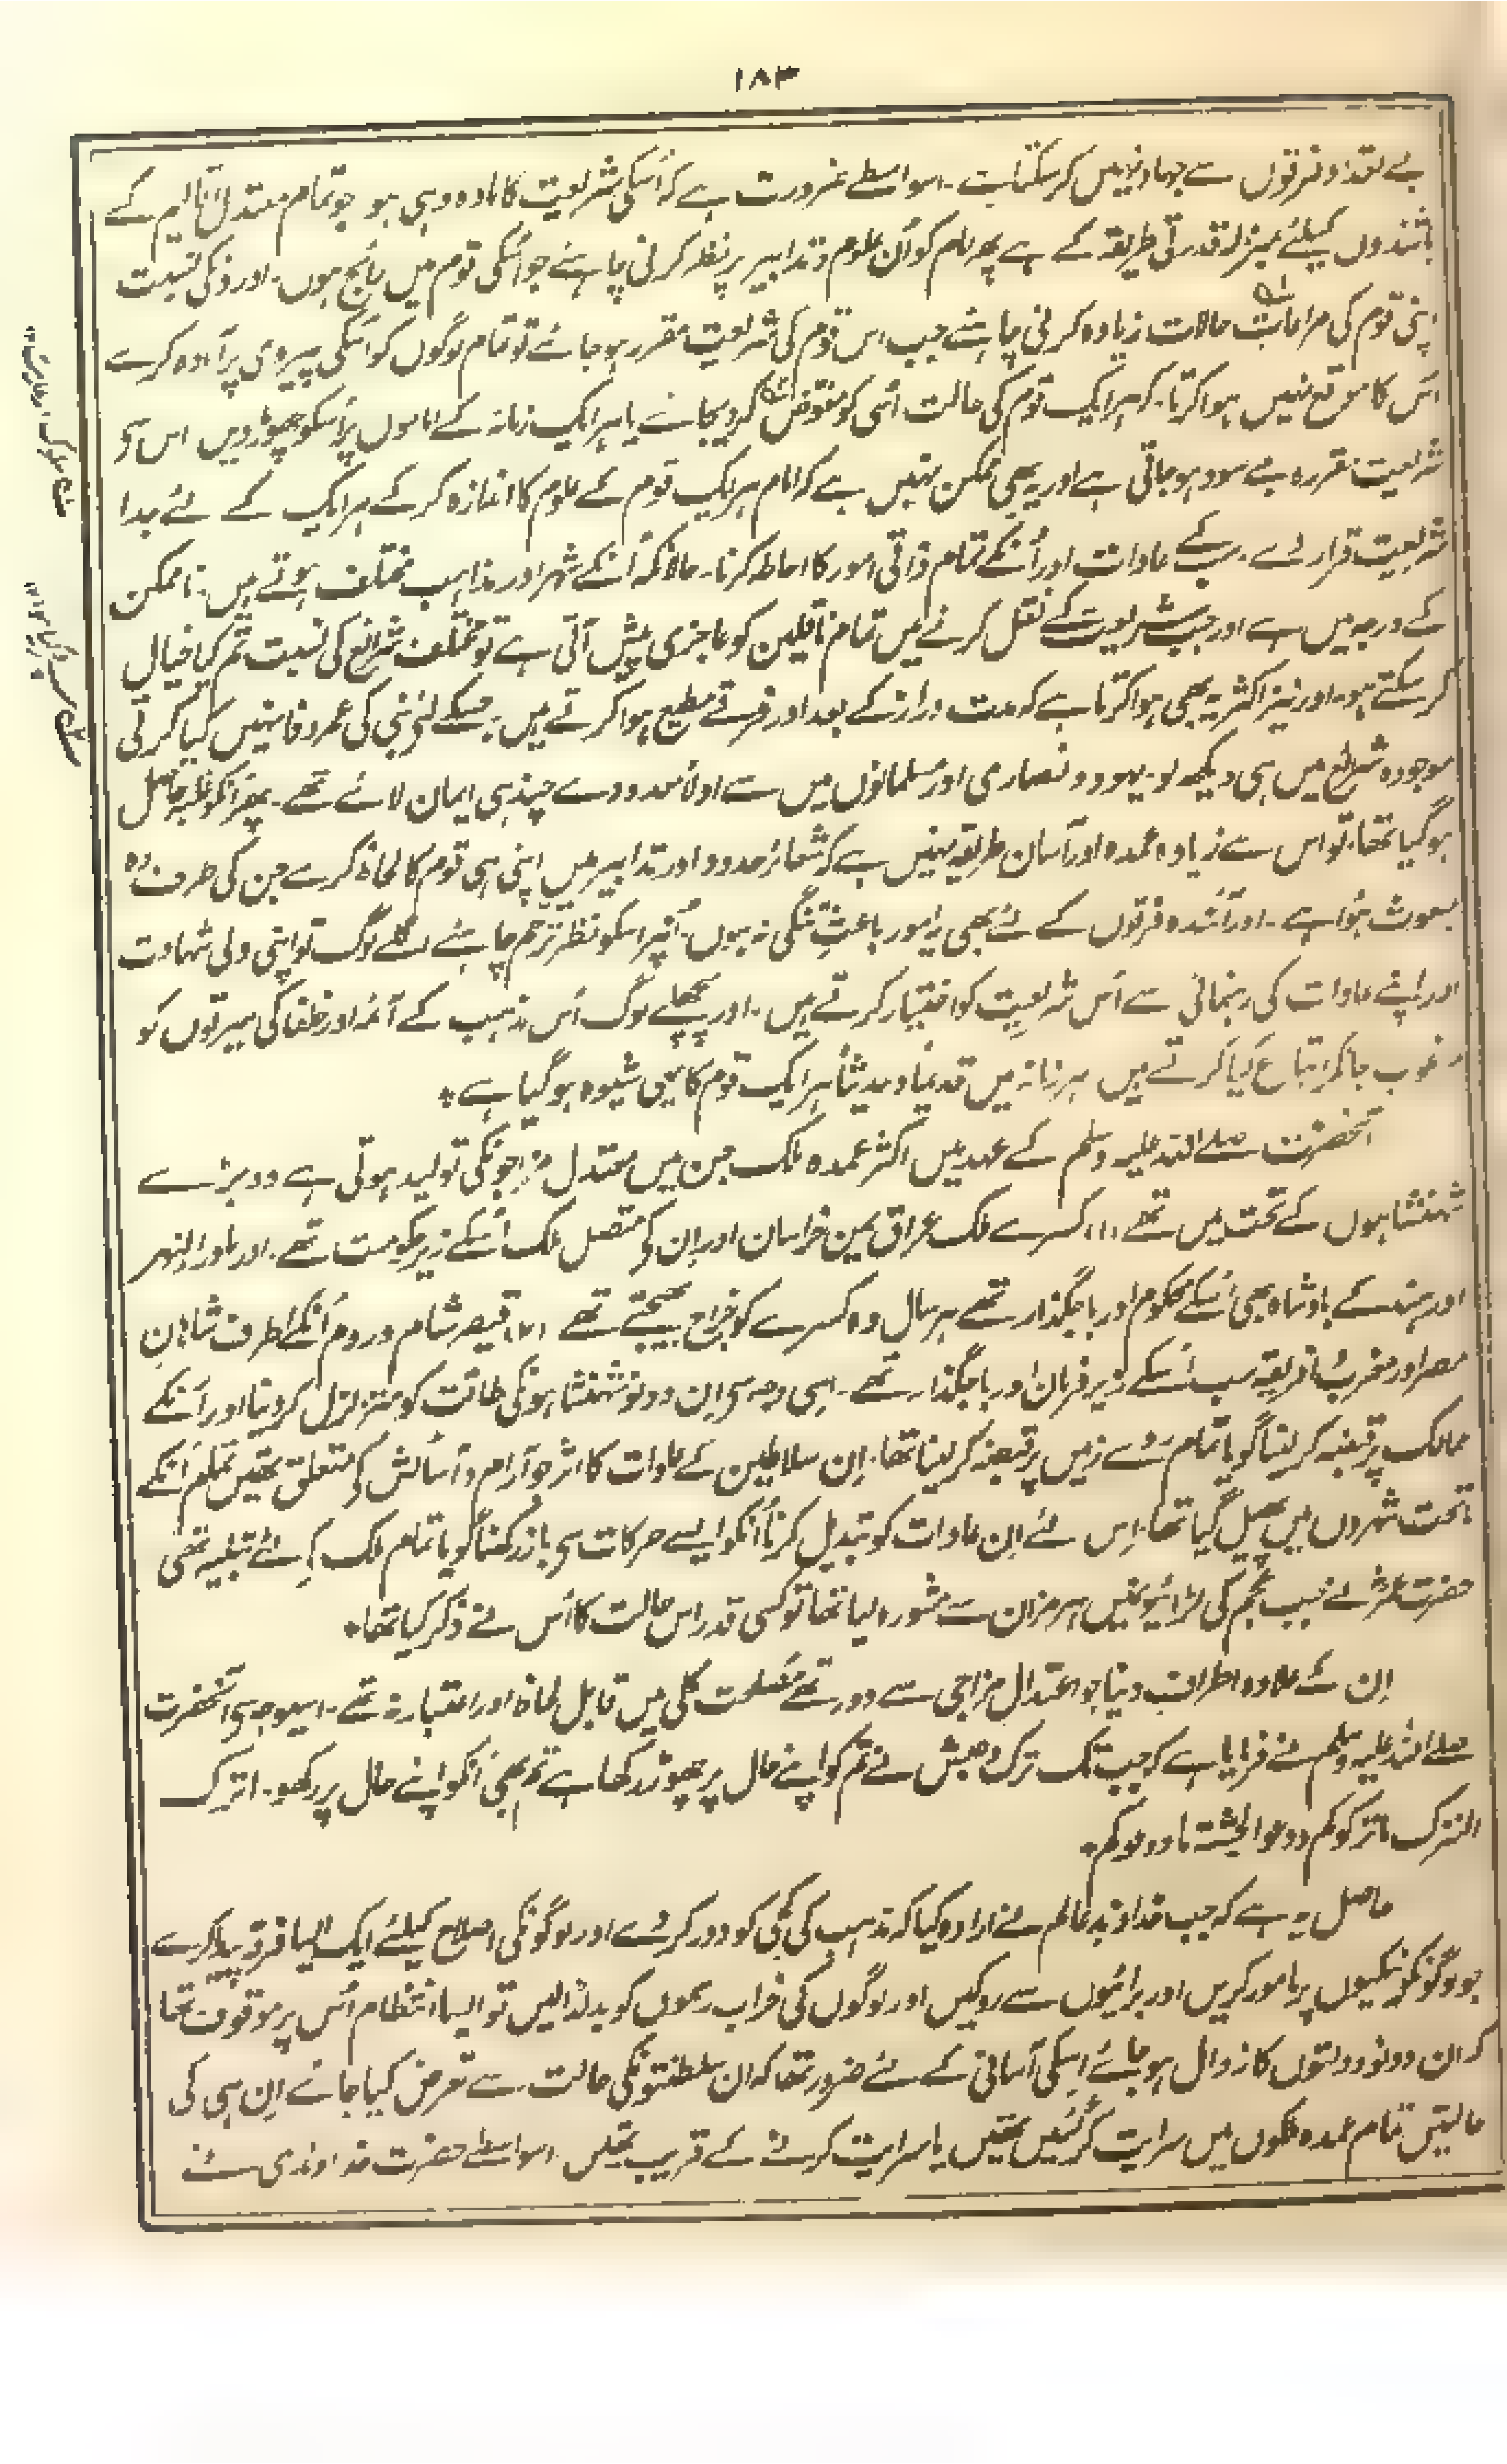 ۱۸۳
بے تعداد فرقوں سے جہاد نہیں کر سکتا ہے۔ اسواسطے ضرورت ہے کہ اُسکی شریعت کا مادہ وہی ہو جو تمام معتدل اقالیم کے
باشندوں کیلئے بمنزلہ قدرتی طریقہ کے ہے پھر امام کو اُن علوم و تدابیر پر نظر کرنی چاہئے جو اُسکی قوم میں رائج ہوں۔ اور ونکی نسبت
اپنی قوم کی مراعات حالات زیادہ کرنی چاہئے جب اس قوم کی شریعت مقرر ہو جائے تو تمام لوگوں کو اسکی پیروی پر آمادہ کرے
اس کا موقع نہیں ہوا کرتا۔ کہ ہر ایک قوم کی حالت اُسی کو مفوض کر دیجائے یا ہر ایک زمانہ کے اماموں پر اُسکو چھوڑ دیں اس سے
شریعت مقررہ بے سود ہو جاتی ہے اور یہ بھی ممکن نہیں ہے کہ امام ہر ایک قوم کے علوم کا اندازہ کر کے ہر ایک کے لئے جدا
شریعت قرار دے۔ سب کے عادات اور اُنکے تمام ذاتی امور کا احاطہ کرنا۔ حالانکہ اُنکے شہر اور مذاہب مختلف ہوتے ہیں۔ ناممکن
کے درجہ میں ہے اور جب شریعت کے نقل کرنے میں تمام ناقلین کو عاجزی پیش آتی ہے تو مختلف شرائع کی نسبت تم کیا خیال
کر سکتے ہو۔ اور نیز اکثر یہ بھی ہوا کرتا ہے کہ مدت دراز کے بعد اور فرقے مطیع ہوا کرتے ہیں۔ جسکے لئے نبی کی عمر وفا نہیں کیا کرتی
موجودہ شرائع میں ہی دیکھ لو۔ یہود و نصاری اور مسلمانوں میں سے اولاً معدودے چند ہی ایمان لائے تھے۔ پھر انکو غلبہ حاصل
ہو گیا تھا۔ تو اس سے زیادہ عمدہ اور آسان طریقہ نہیں ہے کہ شعائر حدود اور تدابیر میں اپنی ہی قوم کا لحاظ کرے جن کی طرف وہ
مبعوث ہوا ہے۔ اور آئندہ فرقوں کے لئے بھی یہ امور باعث تنگی نہ ہوں۔ اُنپر اسکو نظر ترحم چاہئے اگلے لوگ تو اپنی دلی شہادت
اور اپنے عادات کی رہنمائی سے اُس شریعت کو اختیار کرتے ہیں۔ اور پچھلے لوگ اُس مذہب کے آئمہ اور خلفا کی سیرتوں کو
مرغوب جان کر اتباع کیا کرتے ہیں ہر زمانہ میں قدیماً و حدیثاً ہر ایک قوم کا یہی شیوہ ہو گیا ہے *
آنحضرت صلے اللہ علیہ وسلم کے عہد میں اکثر عمدہ ملک جن میں معتدل مزاجونکی تولید ہوتی ہے دو بڑے
شہنشاہوں کے تحت میں تھے (۱) کسرے ملک عراق یمن خراسان اور ان کی متصل ملک اُسکے زیر حکومت تھے۔ اور ماوراء النہر
اور ہند کے بادشاہ بھی اُسکے محکوم اور باجگذار تھے ہر سال وہ کسرے کو خراج بھیجتے تھے (۲) قیصر شام و روم اُنکے اطراف شاہان
مصر اور مغرب افریقہ سب اُسکے زیر فرمان اور باجگذار تھے۔ اسی وجہ سی ان دونو شہنشاہونکی طاقت کو متزلزل کر دینا اور اُنکے
ممالک پر قبضہ کر لینا گویا تمام روے زمیں پر قبضہ کر لینا تھا۔ ان سلاطین کے عادات کا اثر جو آرام و آسائش کی متعلق تھیں تمام اُنکے
تحت شہروں میں پھیل گیا تھا۔ اس لئے ان عادات کو تبدیل کرنا اُنکو ایسے حرکات سی باز رکھنا گویا تمام ملک کے لئے تنبیہ تھی
حضرت عمرؓ نے جب عجم کی لڑائیونمیں ہرمزان سے مشورہ لیا تھا تو کسی قدر اس حالت کا اُس نے ذکر کیا تھا *
ان کے علاوہ اطراف دنیا جو اعتدال مزاجی سے دور تھے مصلحت کلی میں قابل لحاظ اور اعتبار نہ تھے۔ اسیوجہ سی آنحضرت
صلے اللہ علیہ وسلم نے فرمایا ہے کہ جب تک ترک و حبش نے تم کو اپنے حال پر چھوڑ رکھا ہے تم بھی اُنکو اپنے حال پر رکھو۔ اترک
الترک ماترکوکم ودعوا الحبشة مادعوکم *
حاصل یہ ہے کہ جب خداوند عالم نے ارادہ کیا کہ مذہب کی کجی کو دور کر دے اور لوگونکی اصلاح کیلئے ایک ایسا فرقہ پیدا کرے
جو لوگونکو نیکیوں پر مامور کریں اور برائیوں سے روکیں اور لوگوں کی خراب رسموں کو بدلڈالیں تو ایسا انتظام اُس پر موقوف تھا
کہ ان دونو دولتوں کا زوال ہو جائے اسکی آسانی کے لئے ضرور تھا کہ ان سلطنتونکی حالت سے تعرض کیا جائے ان ہی کی
حالیتں تمام عمدہ ملکوں میں سرایت کر گئیں تھیں یا سرایت کرنے کے قریب تھیں اسواسطے حضرت خداوندی نے